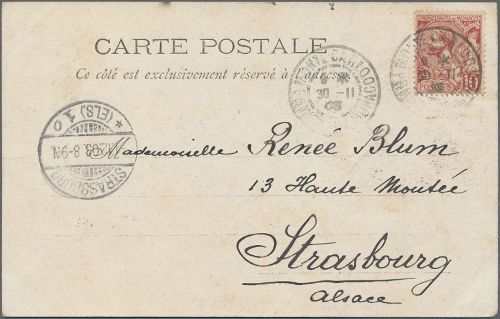 CARTE POSTALE
Ce côté est exclusivement réservé à l'adresse
PRINCIPAUTÉ DE MONACO
POSTES 10
30 -11
03
STRASSBURG
(ELS.) 1 o
12.03.8-9N.
Mademoiselle Renée Blum
13 Haute Montée
Strasbourg
Alsace